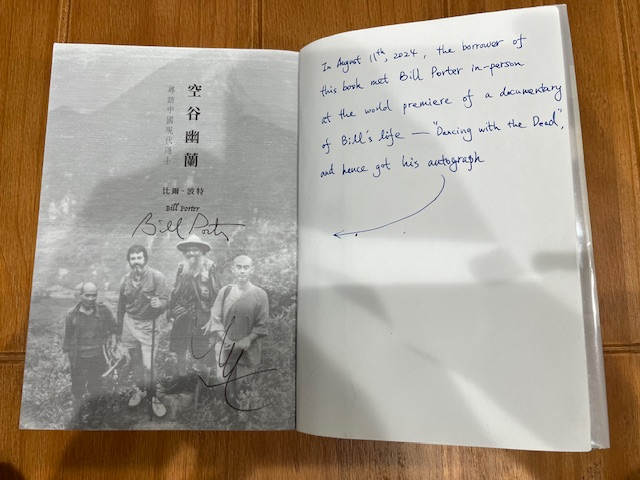 空谷幽蘭
尋訪中國現代隱士
比爾·波特
Bill Porter
Bill Porter
In August 11th, 2024, the borrower of
this book met Bill Porter in-person
at the world premiere of a documentary
of Bill's life — "Dancing with the Dead",
and hence got his autograph